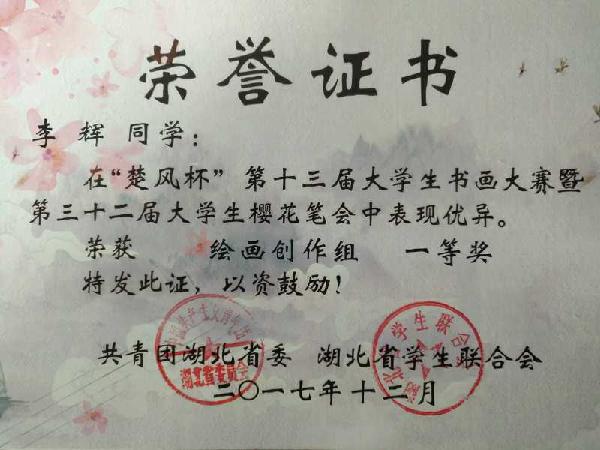 荣誉证书
李辉 同学：
在“楚风杯”第十三届大学生书画大赛暨
第三十二届大学生樱花笔会中表现优异。
荣获 绘画创作组 一等奖
特发此证，以资鼓励！
共青团湖北省委 湖北省学生联合会
二〇一七年十二月
湖北省委员会
湖北省学生联合会